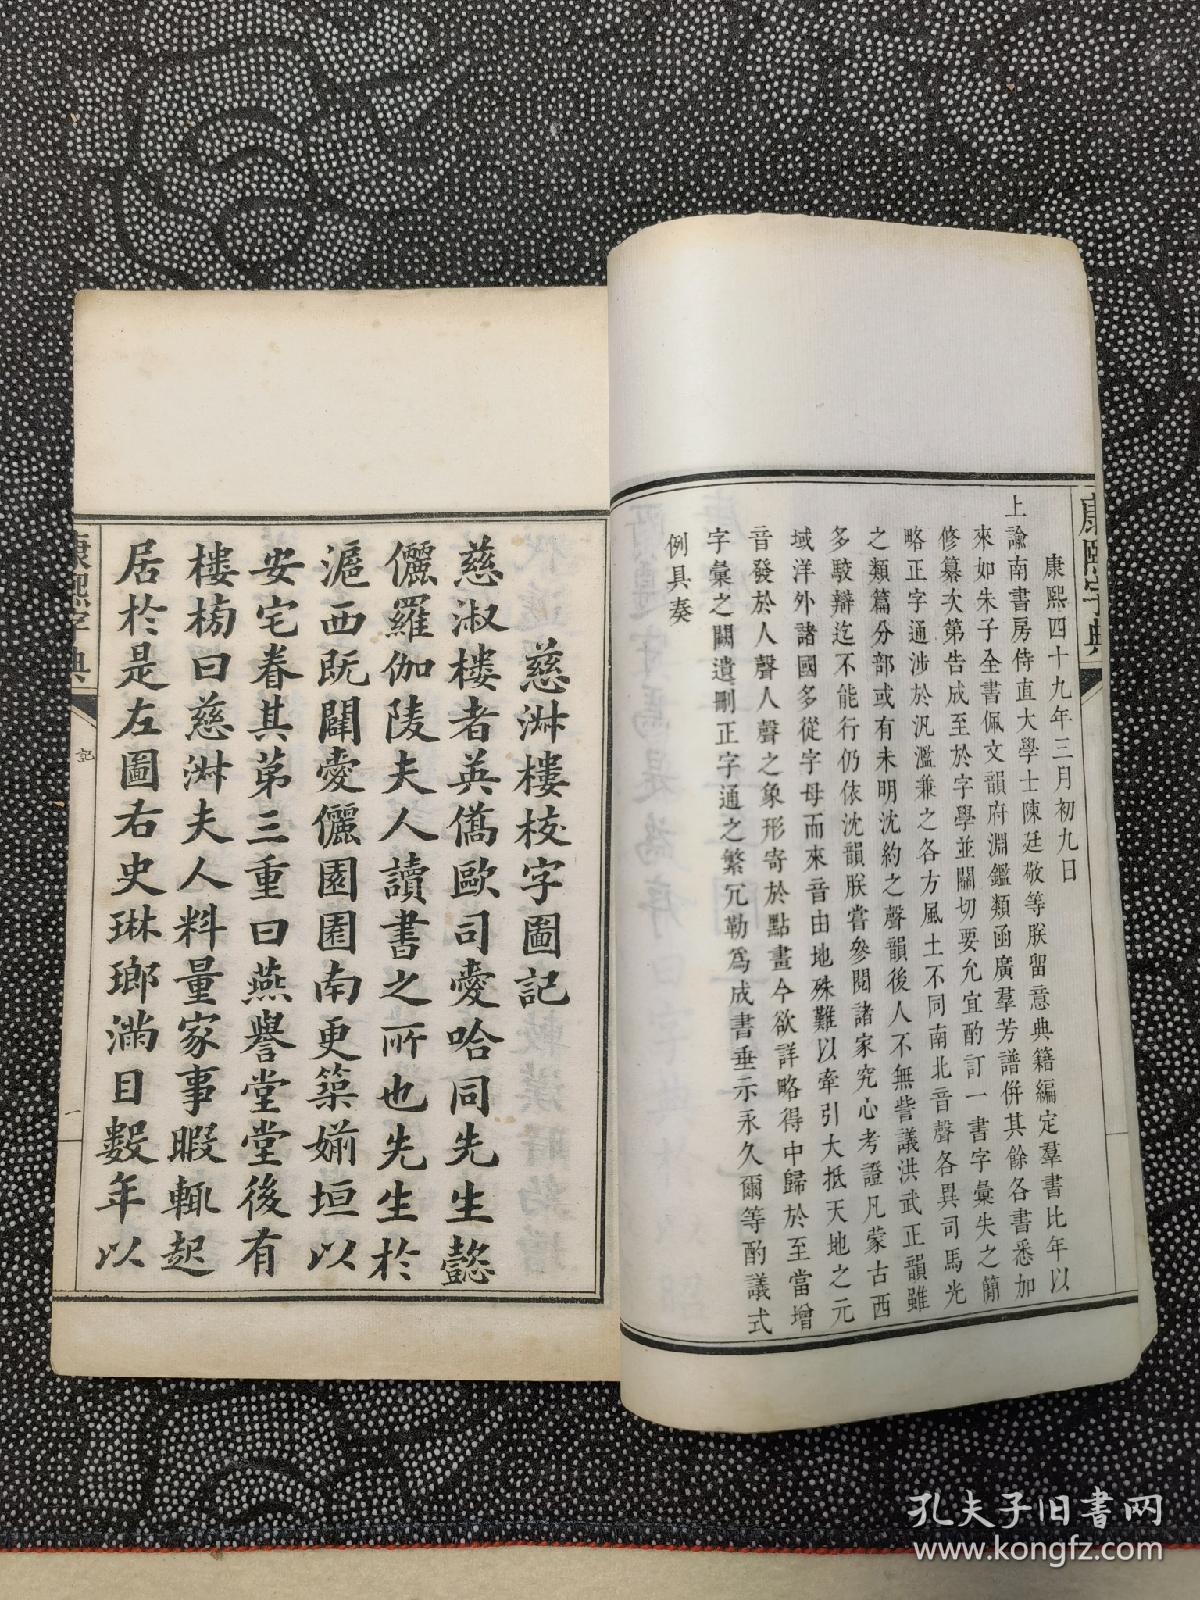 康熙字典
康熙四十九年三月初九日
上諭南書房侍直大學士陳廷敬等朕留意典籍編定羣書比年以
來如朱子全書佩文韻府淵鑑類函廣羣芳譜併其餘各書悉加
修纂次第告成至於字學並關切要允宜酌訂一書字彙失之簡
略正字通涉於汎濫兼之各方風土不同南北音聲各異司馬光
之類篇分部或有未明沈約之聲韻後人不無訾議洪武正韻雖
多駁辯迄不能行仍依沈韻朕嘗參閱諸家究心考證凡蒙古西
域洋外諸國多從字母而來音由地殊難以牽引大抵天地之元
音發於人聲人聲之象形寄於點畫今欲詳略得中歸於至當增
字彙之闕遺刪正字通之繁冗勒為成書垂示永久爾等酌議式
例具奏
慈淑樓校字圖記
慈淑樓者英僑歐司愛哈同先生懿
儷羅伽陵夫人讀書之所也先生於
滬西既闢愛儷園園南更築媊垣以
安宅眷其第三重曰燕譽堂堂後有
樓榜曰慈淑夫人料量家事暇輒起
居於是左圖右史琳瑯滿目數年以
康熙字典
記
一
孔夫子旧书网
www.kongfz.com